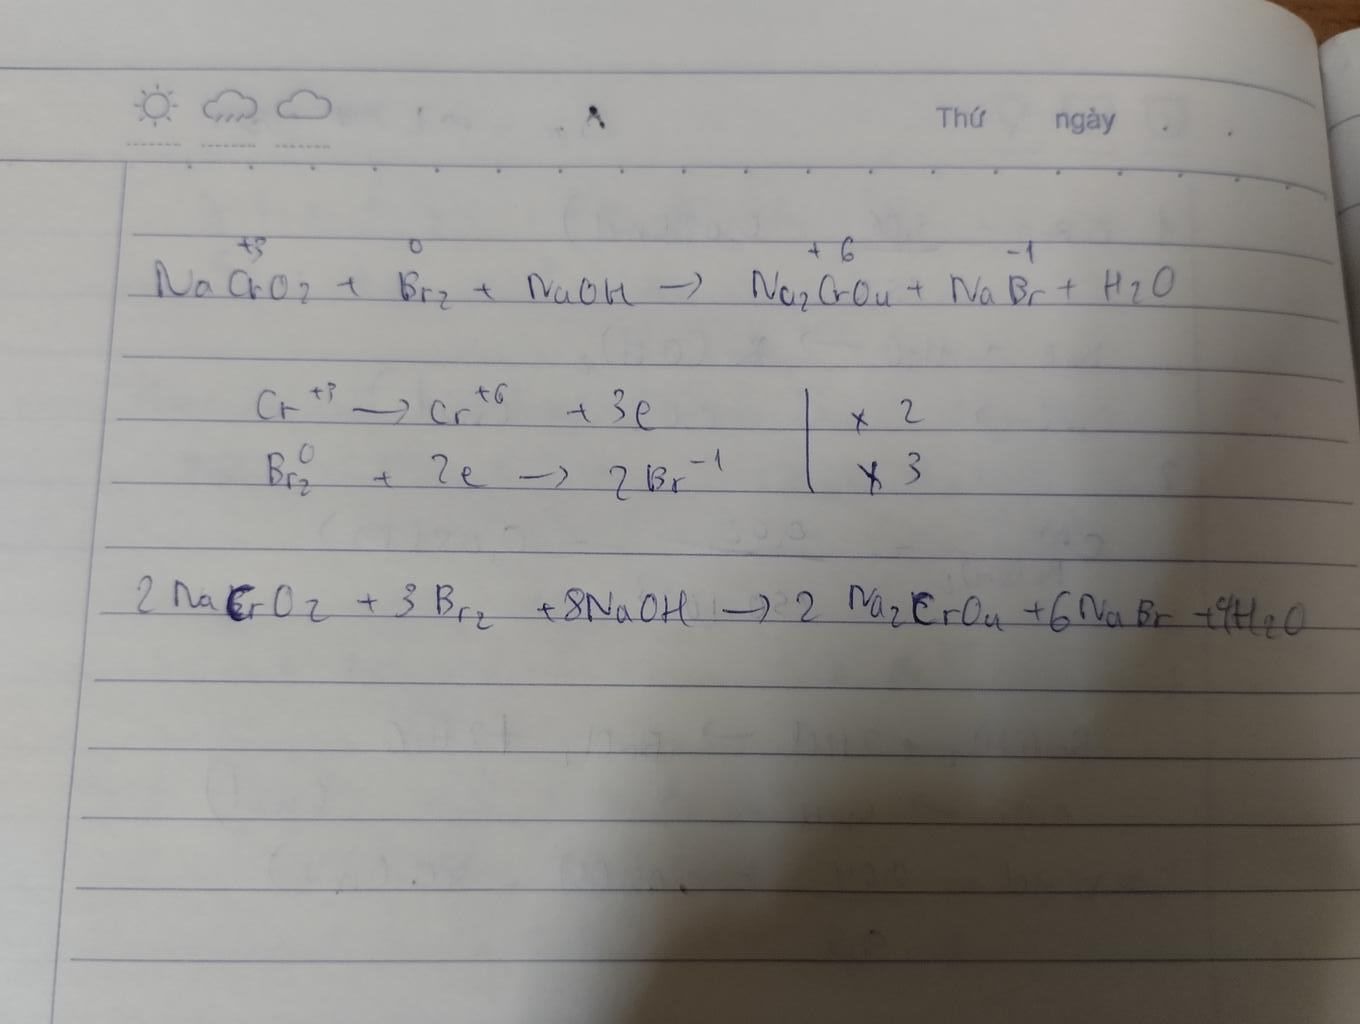 Thứ ngày
+3 0 +6 -1
NaCrO2 + Br2 + NaOH → Na2CrO4 + NaBr + H2O
Cr+3 → Cr+6 + 3e | x 2
Br2 0 + 2e → 2Br-1 | x 3
2NaCrO2 + 3Br2 + 8NaOH → 2 Na2CrO4 + 6NaBr + 4H2O